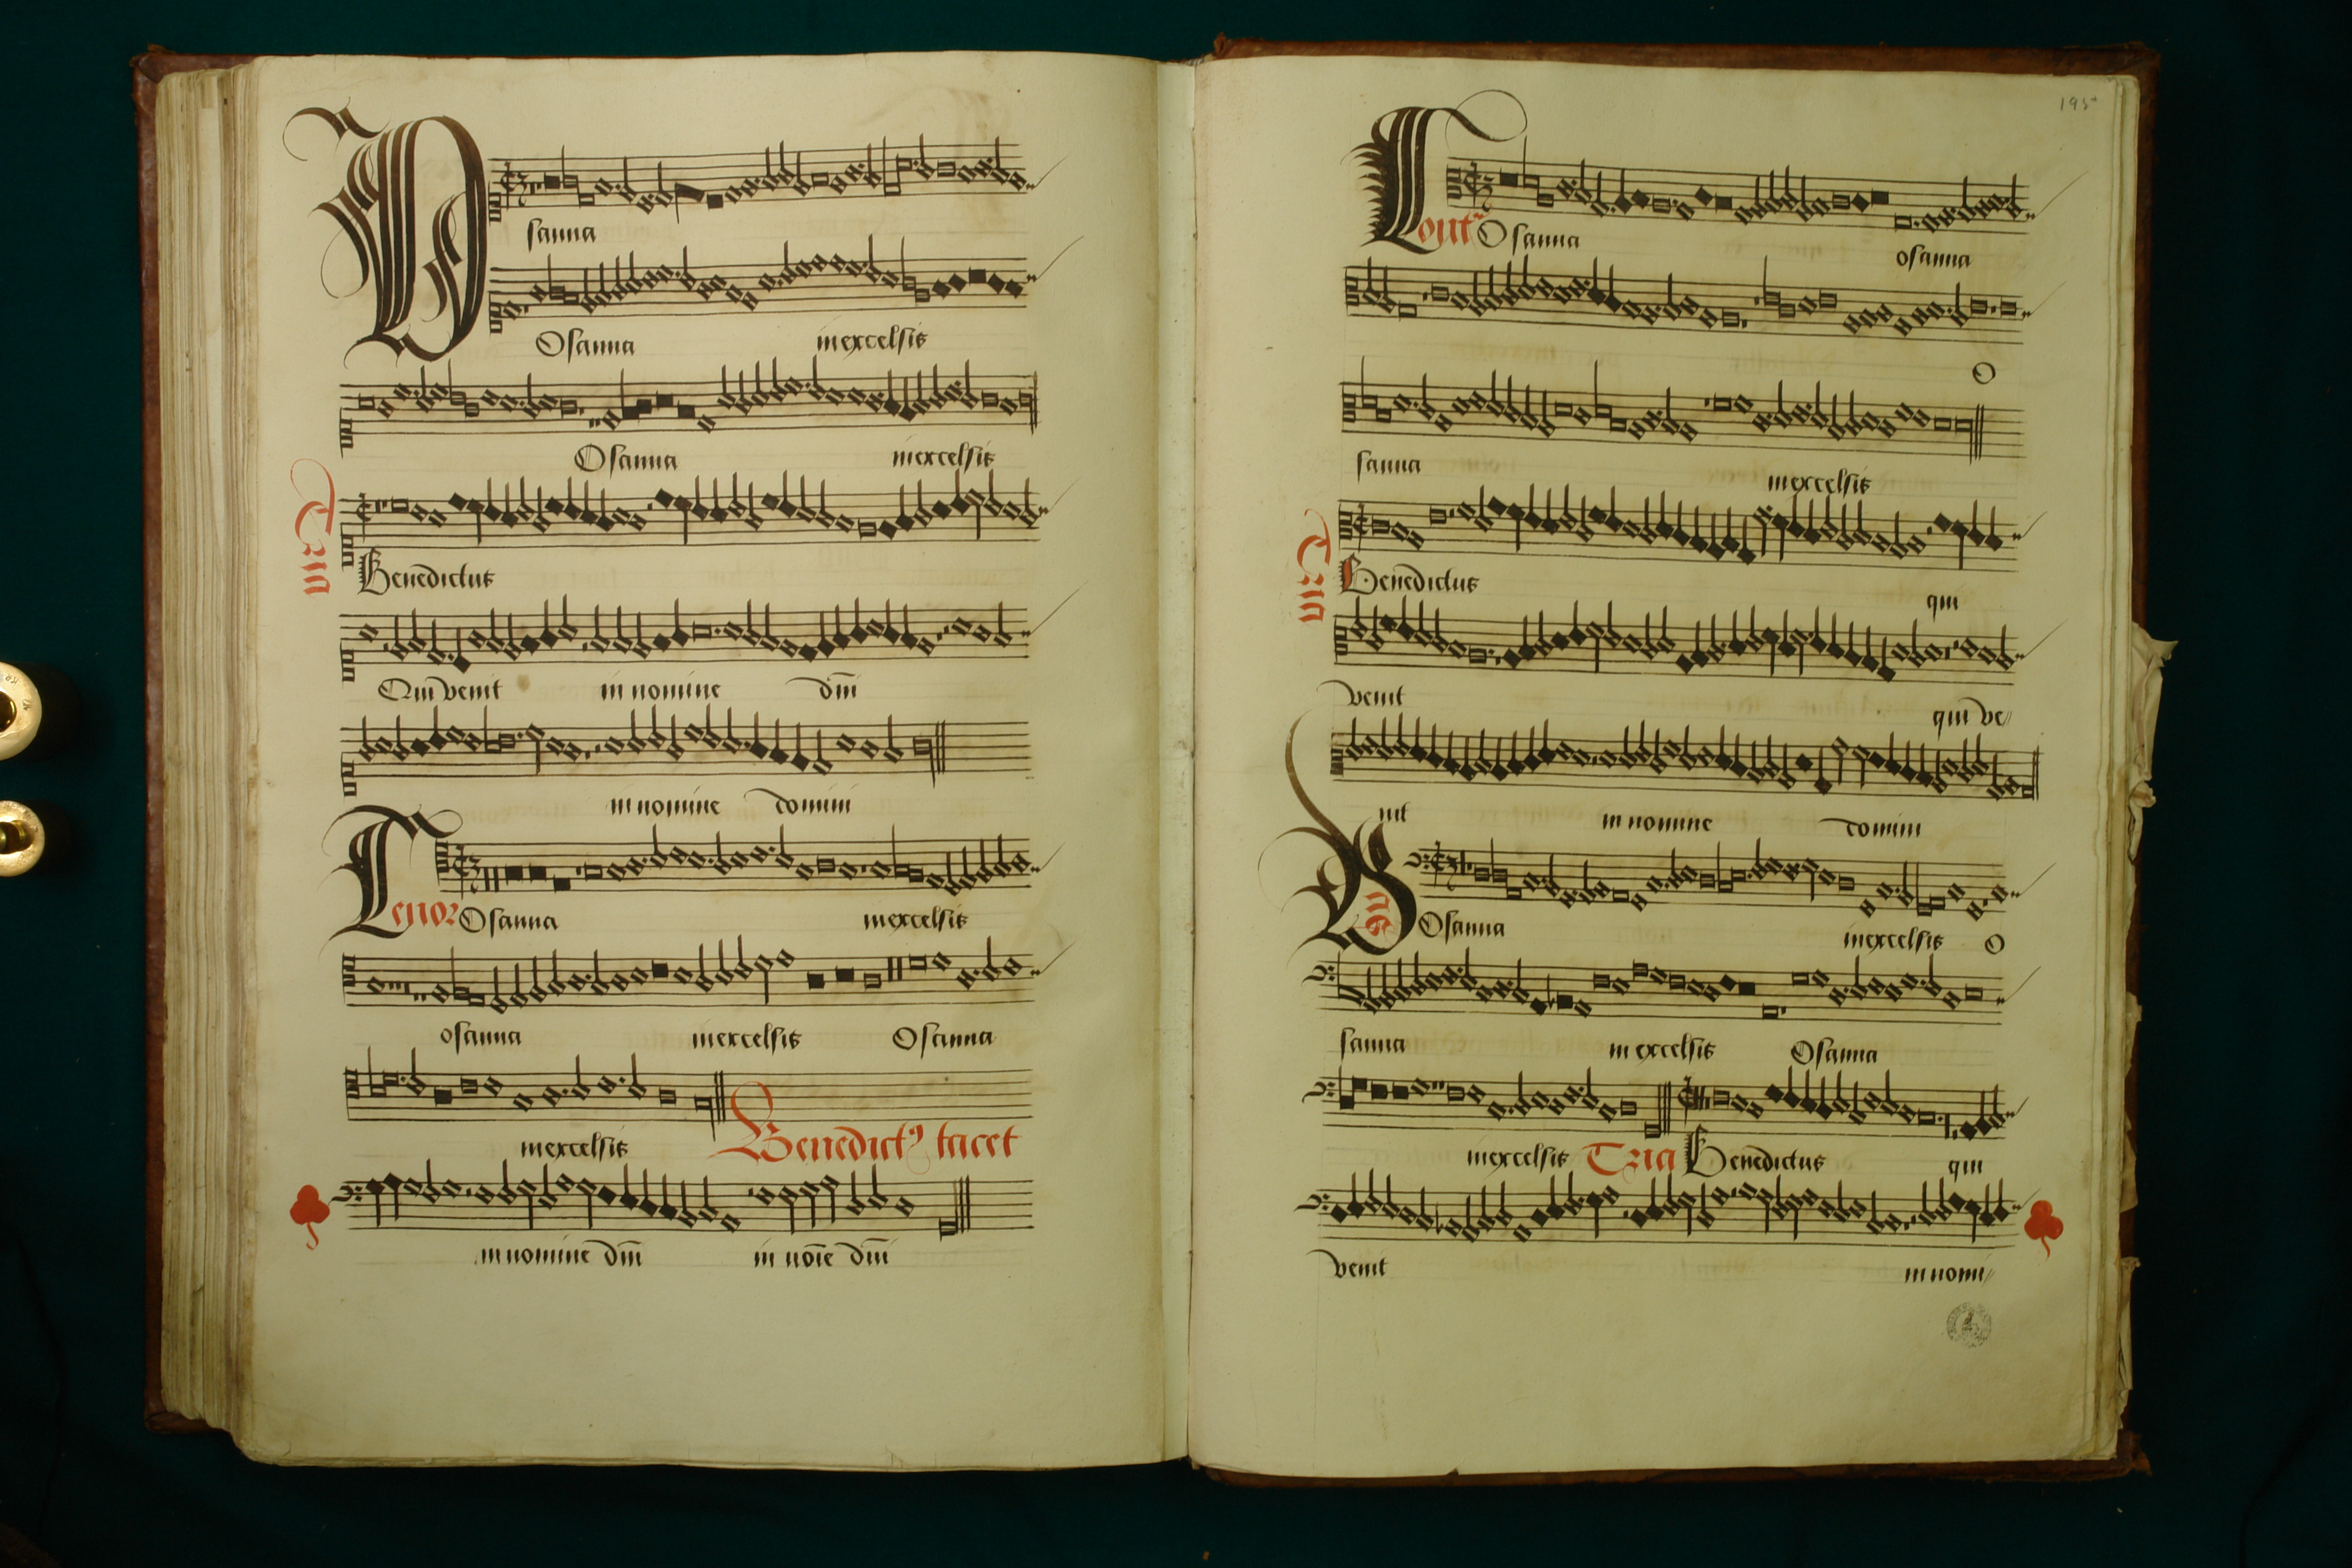 Osanna
Osanna inexcelsis
Osanna inexcelsis
Tria
Benedictus
Qui venit in nomine dñi
in nomine domini
Tenor Osanna inexcelsis
osanna inexcelsis Osanna
inexcelsis Benedictꝰ tacet
in nomine dñi in noīe dñi
195
Contra Osanna osanna
O
sanna inexcelsis
Tria
Benedictus qui
venit qui ve//
nit in nomine domini
Osanna inexcelsis O
sanna in excelsis Osanna
inexcelsis Tria Benedictus qui
venit in nomi//